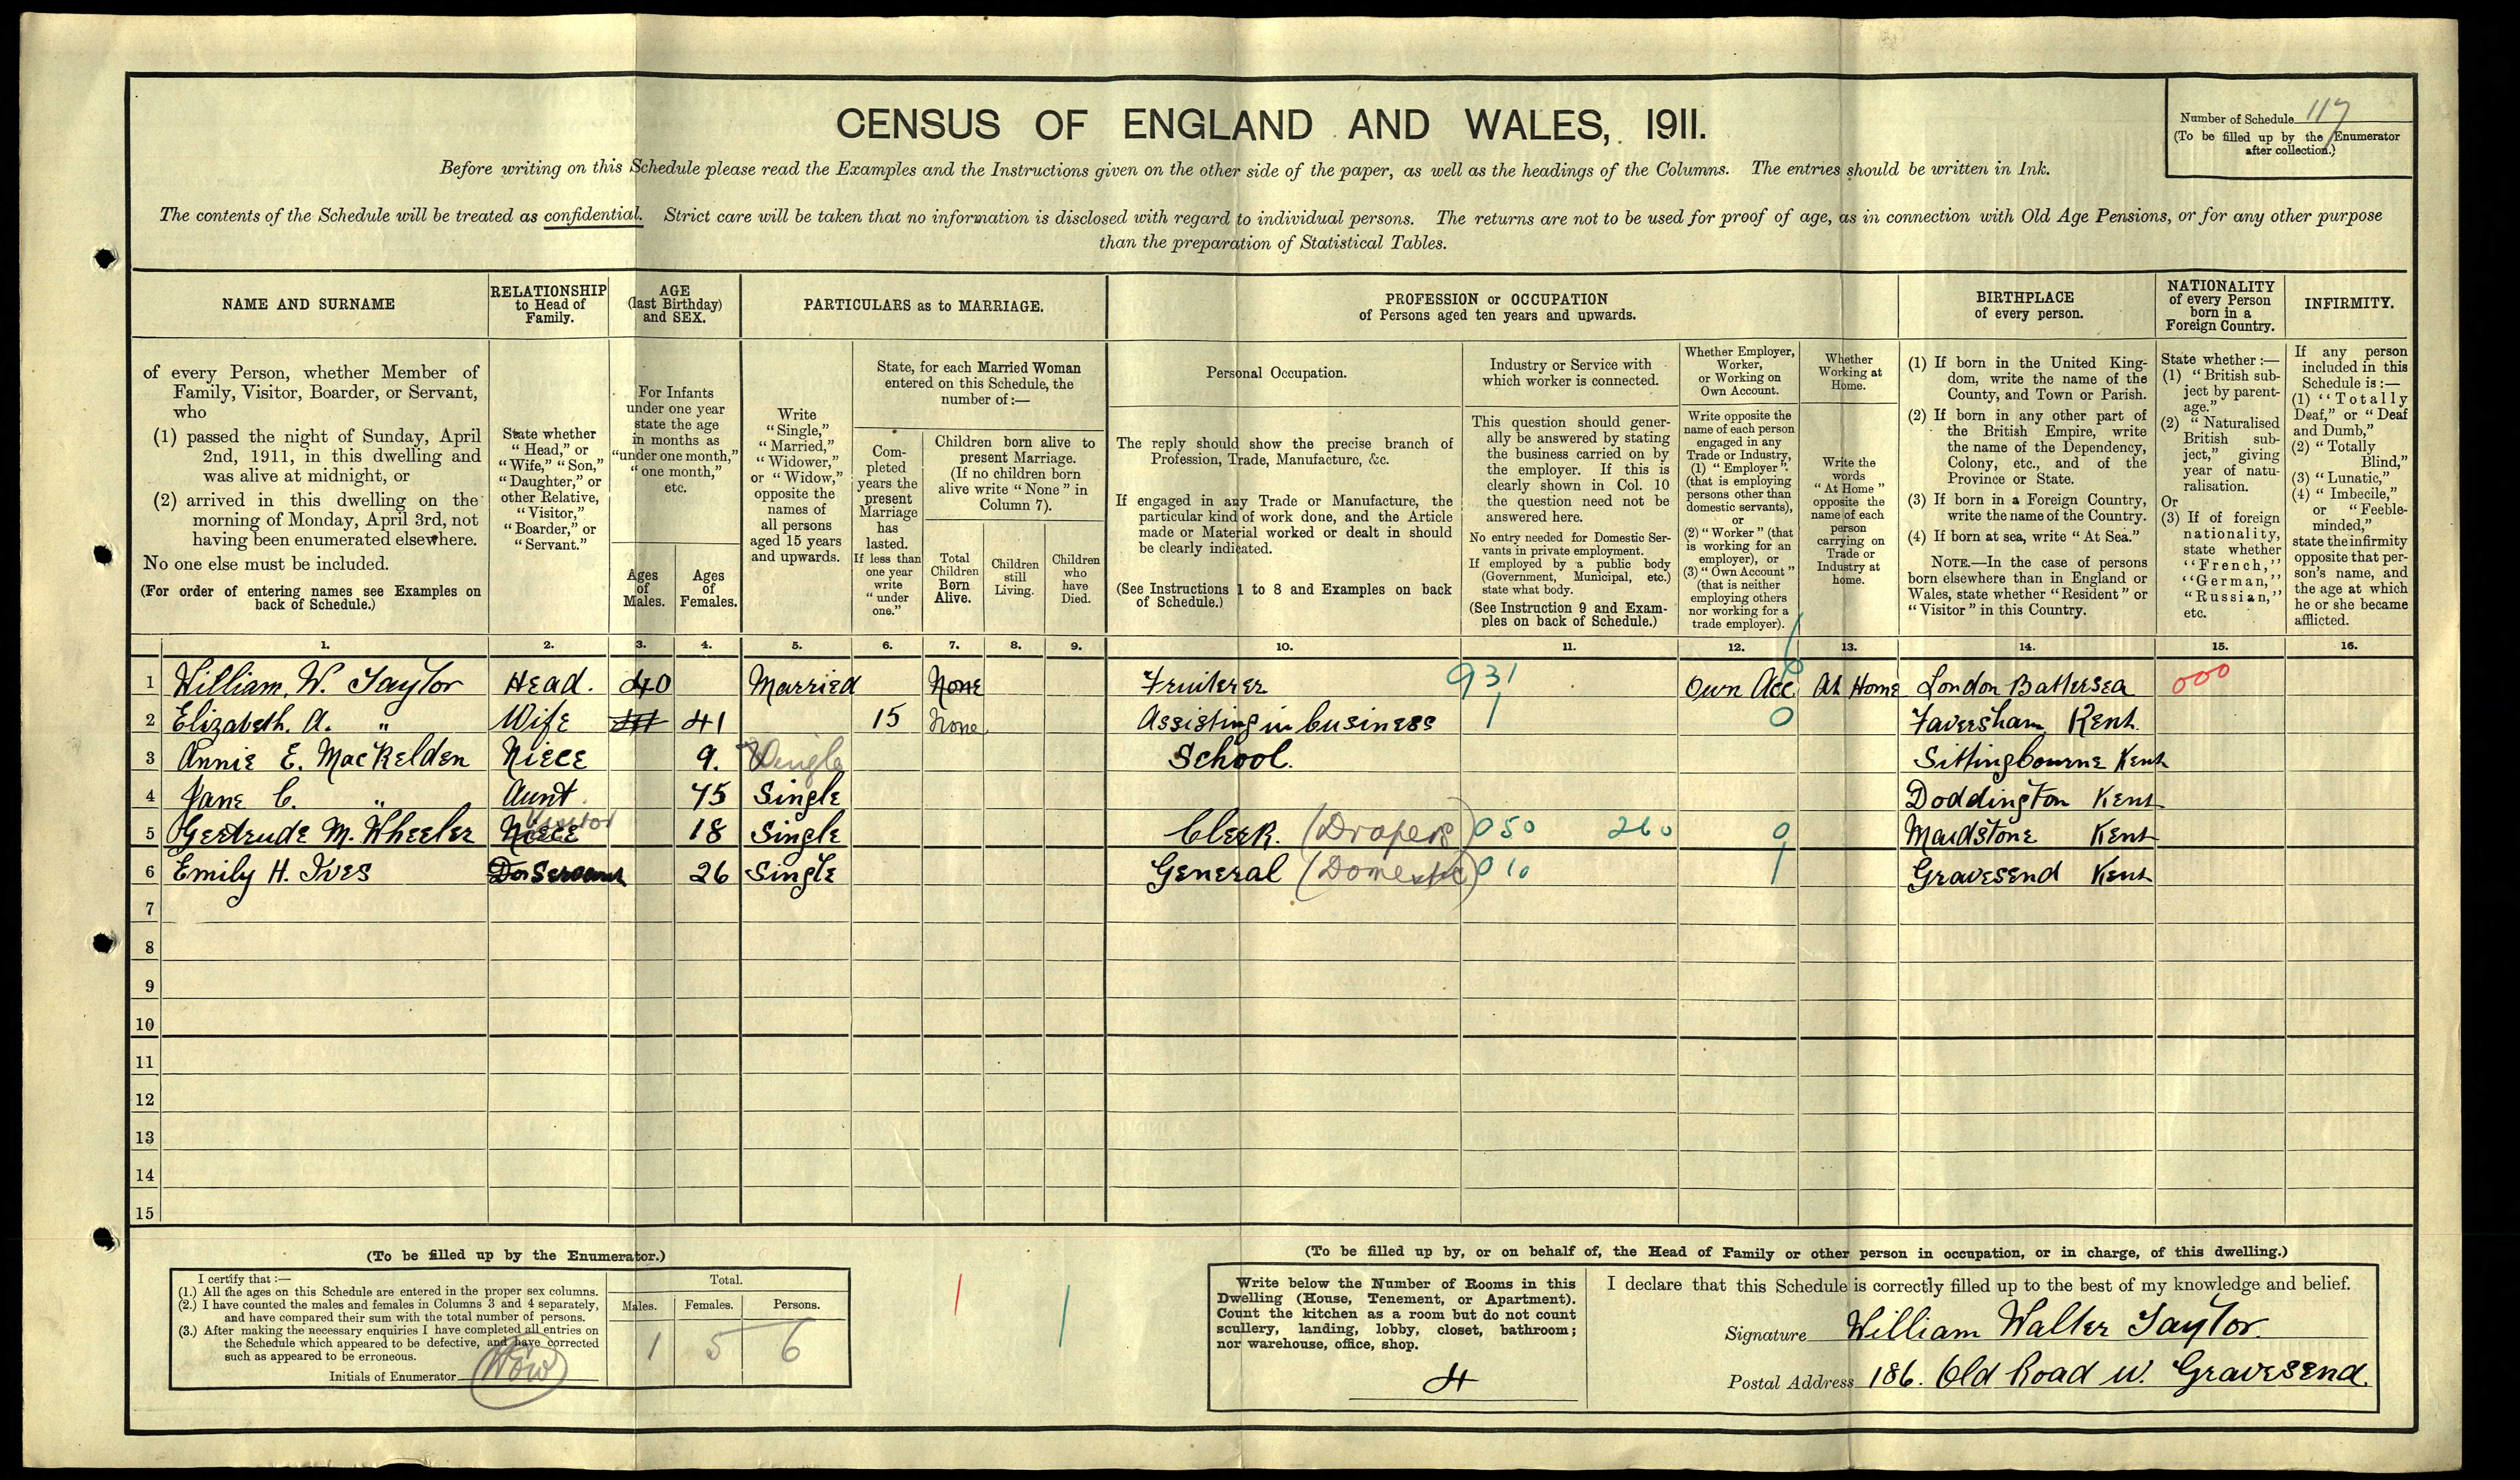 CENSUS OF ENGLAND AND WALES, 1911.
Number of Schedule 117
(To be filled up by the Enumerator
after collection.)
Before writing on this Schedule please read the Examples and the Instructions given on the other side of the paper, as well as the headings of the Columns. The entries should be written in Ink.
The contents of the Schedule will be treated as confidential. Strict care will be taken that no information is disclosed with regard to individual persons. The returns are not to be used for proof of age, as in connection with Old Age Pensions, or for any other purpose
than the preparation of Statistical Tables.
NAME AND SURNAME
of every Person, whether Member of
Family, Visitor, Boarder, or Servant,
who
(1) passed the night of Sunday, April
2nd, 1911, in this dwelling and
was alive at midnight, or
(2) arrived in this dwelling on the
morning of Monday, April 3rd, not
having been enumerated elsewhere.
No one else must be included.
(For order of entering names see Examples on
back of Schedule.)
RELATIONSHIP
to Head of
Family.
State whether
"Head," or
"Wife," "Son,"
"Daughter," or
other Relative,
"Visitor,"
"Boarder," or
"Servant."
AGE
(last Birthday)
and SEX.
For Infants
under one year
state the age
in months as
"under one month,"
"one month,"
etc.
Ages
of
Males.
Ages
of
Females.
PARTICULARS as to MARRIAGE.
Write
"Single,"
"Married,"
"Widower,"
or "Widow,"
opposite the
names of
all persons
aged 15 years
and upwards.
State, for each Married Woman
entered on this Schedule, the
number of:—
Com-
pleted
years the
present
Marriage
has
lasted.
If less than
one year
write
"under
one."
Children born alive to
present Marriage.
(If no children born
alive write "None" in
Column 7).
Total
Children
Born
Alive.
Children
still
Living.
Children
who
have
Died.
PROFESSION or OCCUPATION
of Persons aged ten years and upwards.
Personal Occupation.
The reply should show the precise branch of
Profession, Trade, Manufacture, &c.
If engaged in any Trade or Manufacture, the
particular kind of work done, and the Article
made or Material worked or dealt in should
be clearly indicated.
(See Instructions 1 to 8 and Examples on back
of Schedule.)
Industry or Service with
which worker is connected.
This question should gener-
ally be answered by stating
the business carried on by
the employer. If this is
clearly shown in Col. 10
the question need not be
answered here.
No entry needed for Domestic Ser-
vants in private employment.
If employed by a public body
(Government, Municipal, etc.)
state what body.
(See Instruction 9 and Exam-
ples on back of Schedule.)
Whether Employer,
Worker,
or Working on
Own Account.
Write opposite the
name of each person
engaged in any
Trade or Industry,
(1) "Employer"
(that is employing
persons other than
domestic servants),
or
(2) "Worker" (that
is working for an
employer), or
(3) "Own Account"
(that is neither
employing others
nor working for a
trade employer).
Whether
Working at
Home.
Write the
words
"At Home"
opposite the
name of each
person
carrying on
Trade or
Industry at
home.
BIRTHPLACE
of every person.
(1) If born in the United King-
dom, write the name of the
County, and Town or Parish.
(2) If born in any other part of
the British Empire, write
the name of the Dependency,
Colony, etc., and of the
Province or State.
(3) If born in a Foreign Country,
write the name of the Country.
(4) If born at sea, write "At Sea."
NOTE.—In the case of persons
born elsewhere than in England or
Wales, state whether "Resident" or
"Visitor" in this Country.
NATIONALITY
of every Person
born in a
Foreign Country.
State whether:—
(1) "British sub-
ject by parent-
age."
(2) "Naturalised
British sub-
ject," giving
year of natu-
ralisation.
Or
(3) If of foreign
nationality,
state whether
"French,"
"German,"
"Russian,"
etc.
INFIRMITY.
If any person
included in this
Schedule is:—
(1) "Totally
Deaf," or "Deaf
and Dumb,"
(2) "Totally
Blind,"
(3) "Lunatic,"
(4) "Imbecile,"
or "Feeble-
minded,"
state the infirmity
opposite that per-
son's name, and
the age at which
he or she became
afflicted.
1. 2. 3. 4. 5. 6. 7. 8. 9. 10. 11. 12. 13. 14. 15. 16.
1 William. W. Taylor Head. 40 Married None Fruiterer 931 Own Acc 0 At Home London Battersea 000
2 Elizabeth. A. " Wife 41 41 15 None Assisting in business 1 0 Faversham Kent.
3 Annie E. MacKelden Niece 9. Single School. Sittingbourne Kent
4 Jane C. " Aunt 75 Single Doddington Kent
5 Gertrude M. Wheeler Niece Visitor 18 Single Clerk. (Drapers) 050 260 0 Maidstone Kent
6 Emily H. Ives Dom Servant 26 Single General (Domestic) 010 1 Gravesend Kent
7
8
9
10
11
12
13
14
15
(To be filled up by the Enumerator.)
I certify that:—
(1.) All the ages on this Schedule are entered in the proper sex columns.
(2.) I have counted the males and females in Columns 3 and 4 separately,
and have compared their sum with the total number of persons.
(3.) After making the necessary enquiries I have completed all entries on
the Schedule which appeared to be defective, and have corrected
such as appeared to be erroneous.
Initials of Enumerator
Total.
Males. Females. Persons.
1 5 6
1 1
(To be filled up by, or on behalf of, the Head of Family or other person in occupation, or in charge, of this dwelling.)
Write below the Number of Rooms in this
Dwelling (House, Tenement, or Apartment).
Count the kitchen as a room but do not count
scullery, landing, lobby, closet, bathroom;
nor warehouse, office, shop.
4
I declare that this Schedule is correctly filled up to the best of my knowledge and belief.
Signature William Walter Taylor.
Postal Address 186. Old Road W. Gravesend.